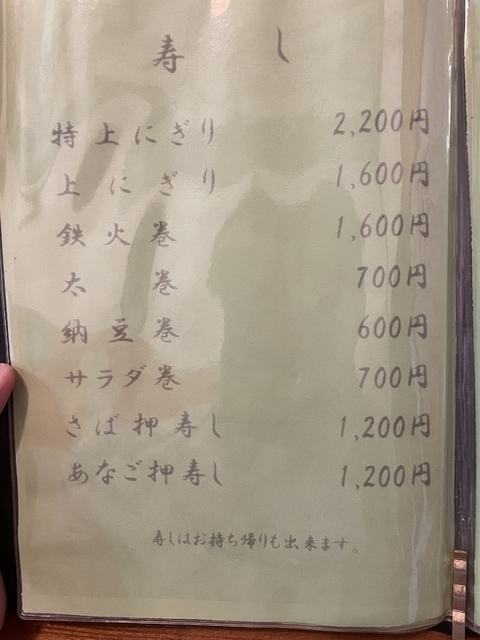 寿し
特上にぎり 2,200円
上にぎり 1,600円
鉄火巻 1,600円
太巻 700円
納豆巻 600円
サラダ巻 700円
さば押寿し 1,200円
あなご押寿し 1,200円
寿しはお持ち帰りも出来ます。